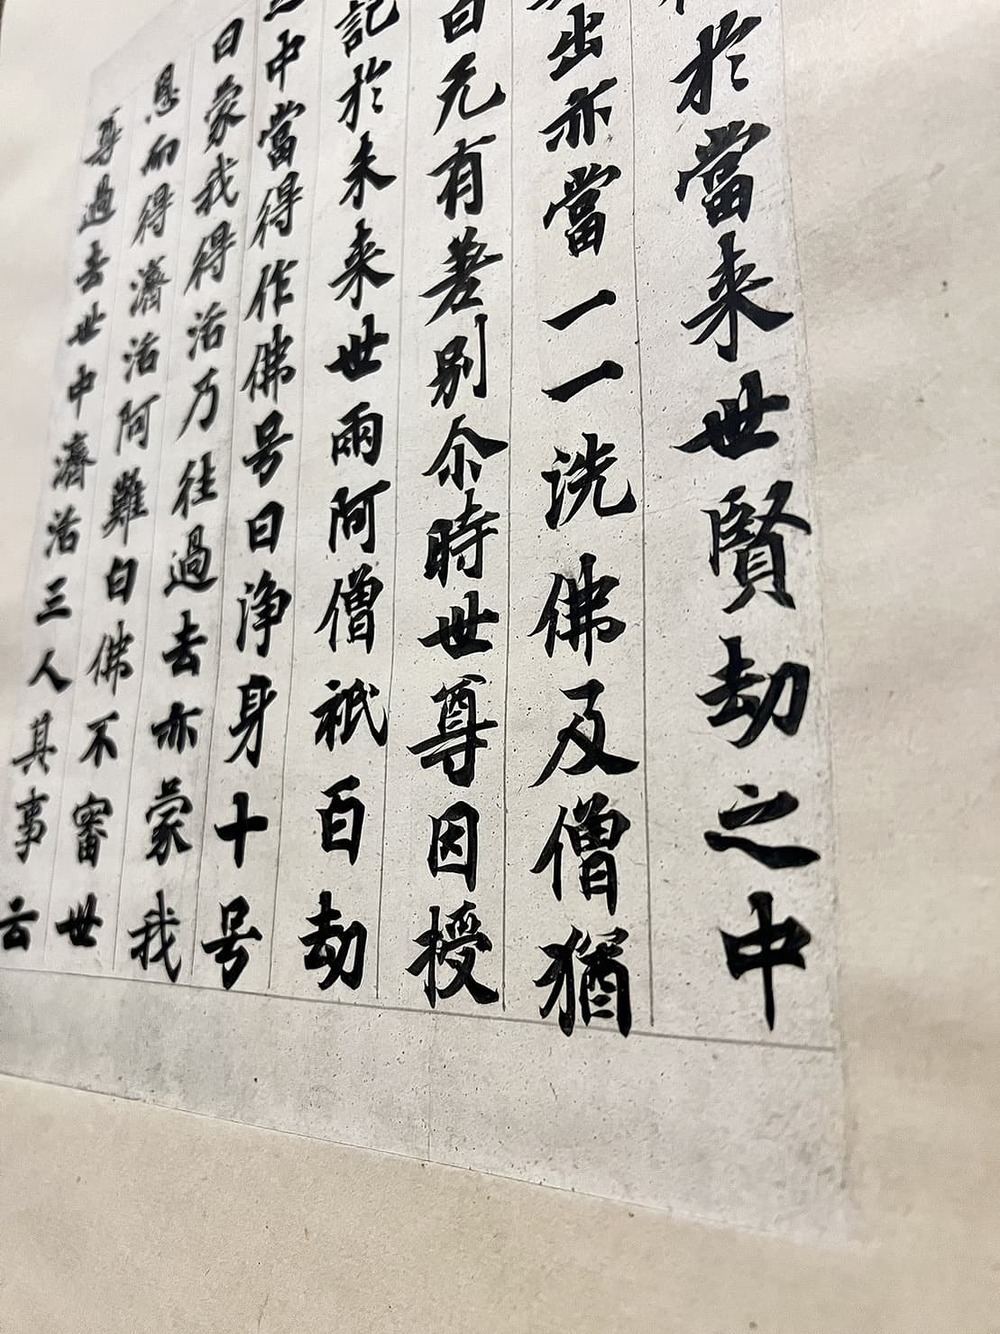 於當来世賢劫之中
出亦當一一洗佛及僧猶
曰无有差別尒時世尊因授
記於未来世兩阿僧祇百劫
中當得作佛号曰淨身十号
曰蒙我得活乃往過去亦蒙我
恩而得濟活阿難白佛不審世
尊過去世中濟活三人其事云